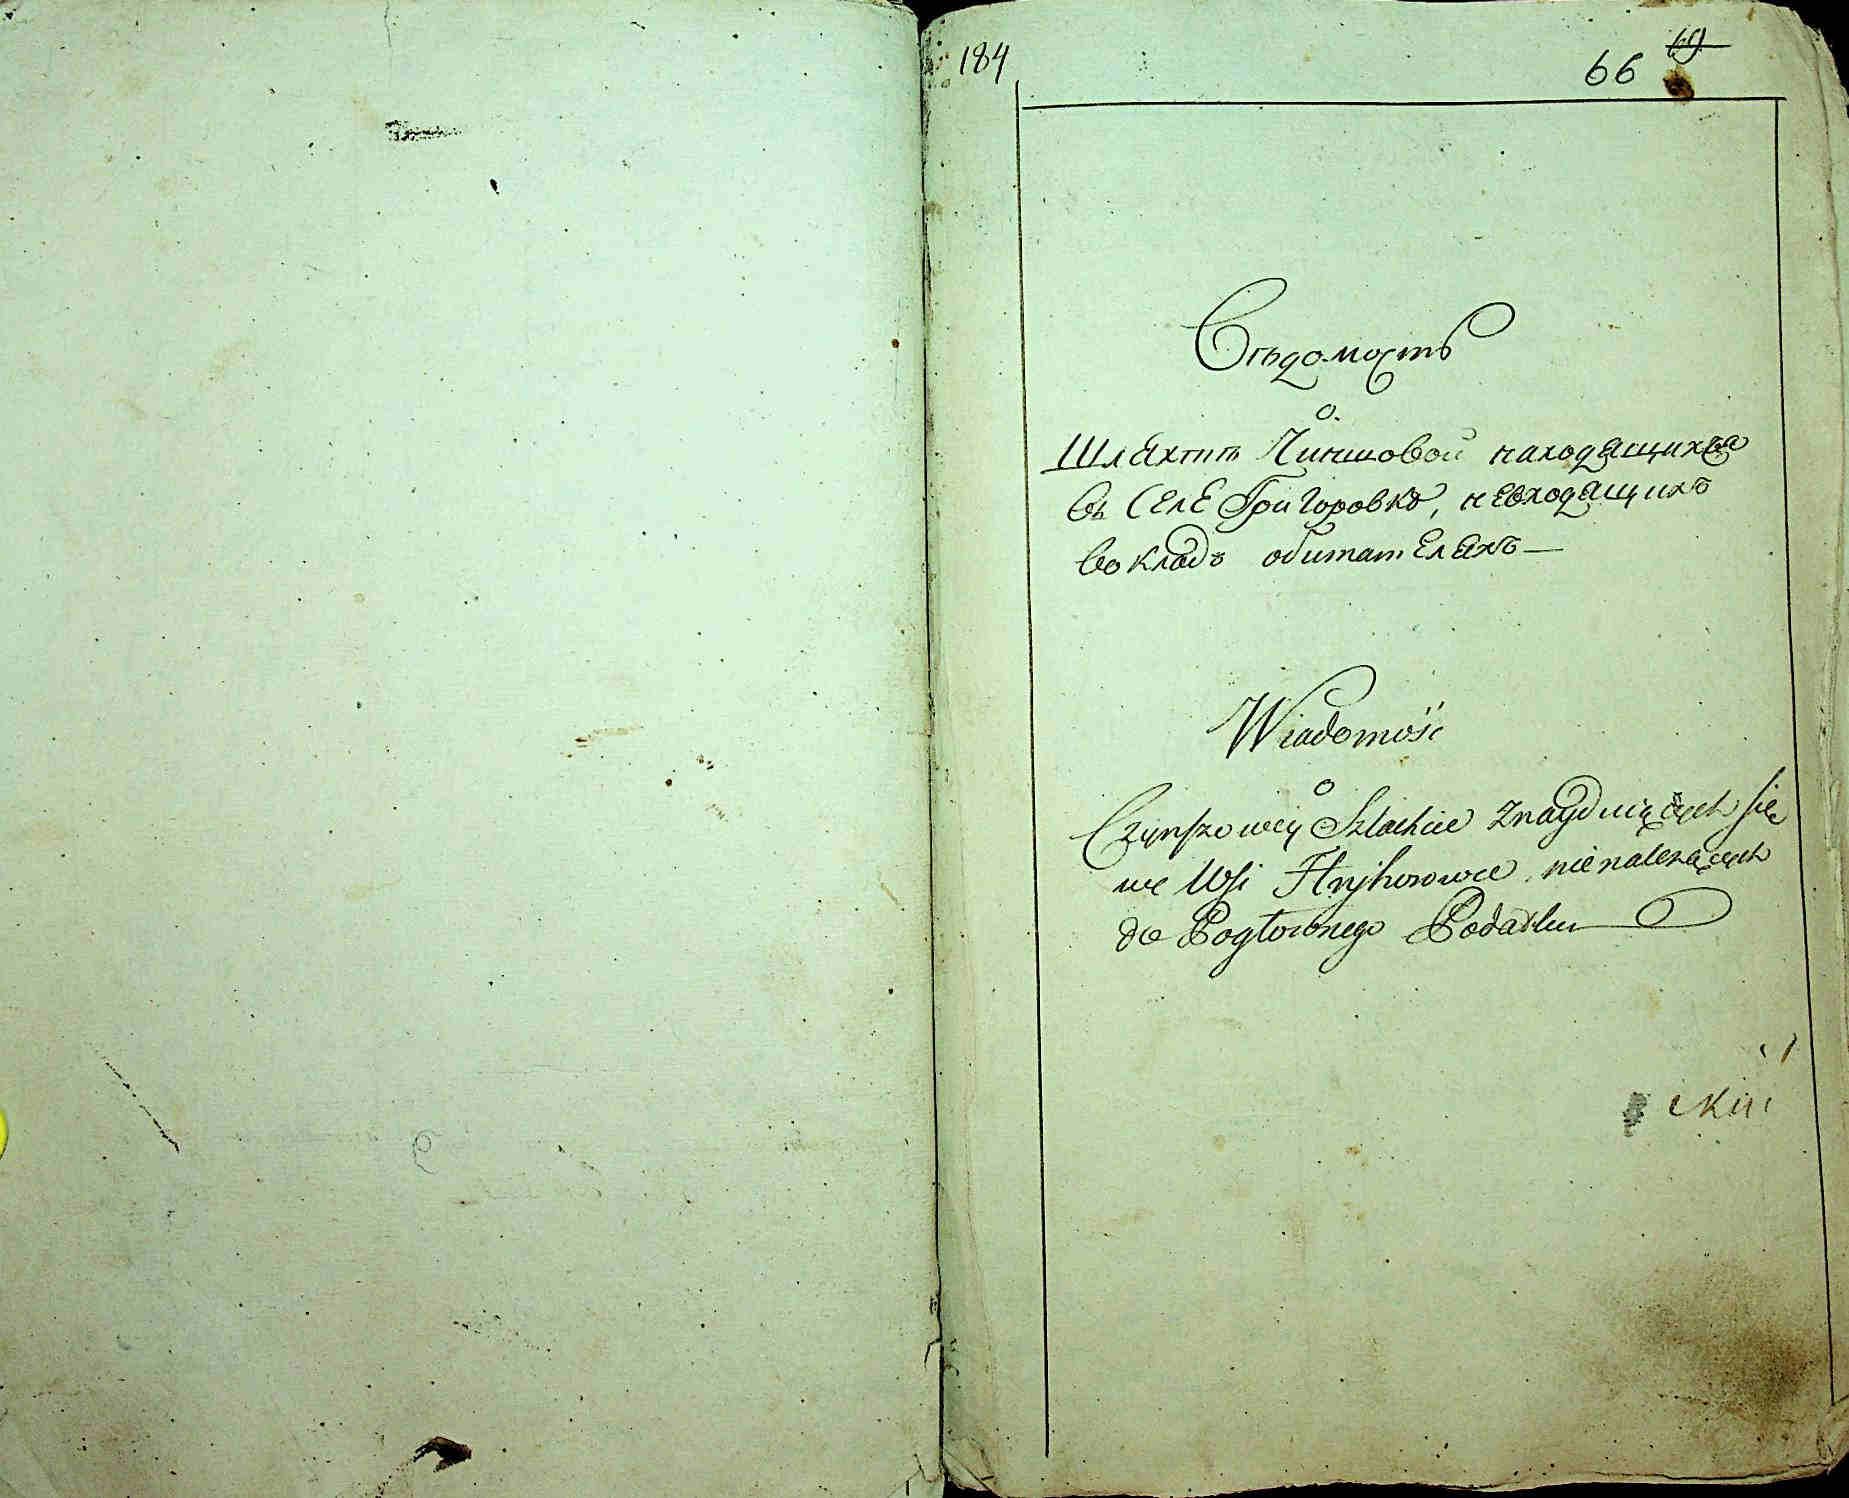 184
66 69
Вѣдомость
о.
Шляхтѣ Чиншовой находящихся
въ Селе Григоровкѣ, невходящихъ
во кладъ обитателяхъ —
Wiadomość
o
Czynszowey Szlachcie znayduiących się
we Wsi Hryhorowce, nienależących
do Pogłownego Podatku
скій